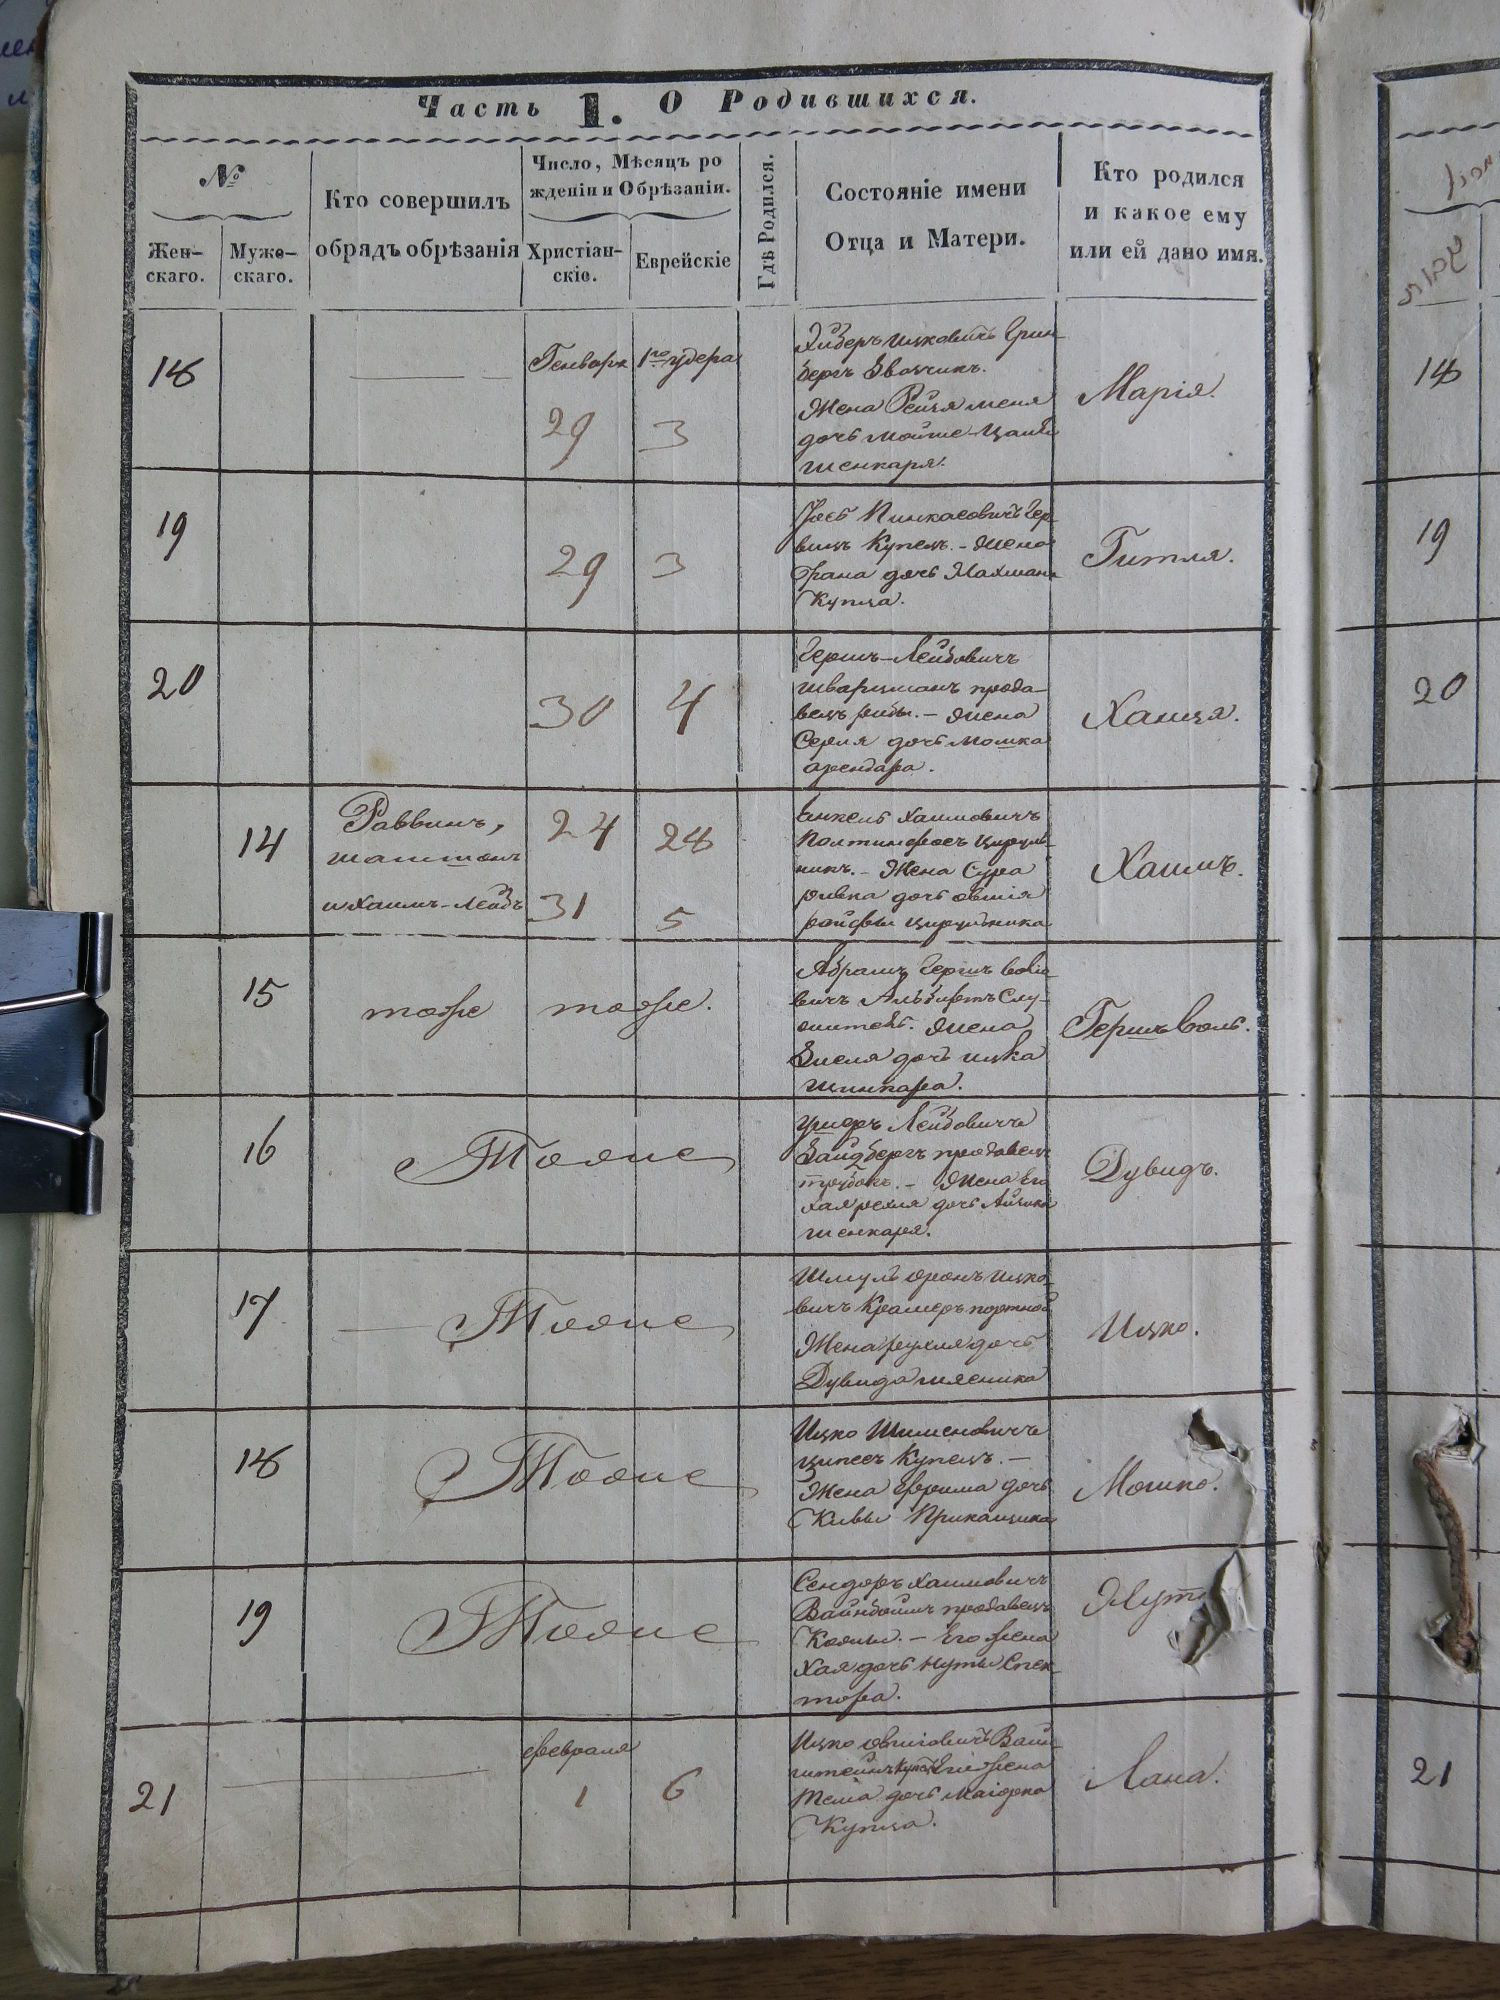 Часть 1. О Родившихся.
№
Жен-
скаго.
Муже-
скаго.
Кто совершилъ
обрядъ обрѣзанія
Число, Мѣсяцъ ро
жденіи и Обрѣзаніи.
Христіан-
скіе.
Еврейскіе
Гдѣ Родился.
Состояніе имени
Отца и Матери.
Кто родился
и какое ему
или ей дано имя.
18
Генваря
29
1го удера
3
Хиберъ Ицковичъ Грин-
бергъ Звощикъ.
Жена Рейзя меня
дочь Мойше
шенкаря.
Марія.
19
29
3
Іось Пинкасовичъ Гер-
вицъ Купецъ. - Жена
Франа дочь Нахмана
Купца.
Гитля.
20
30
4
Гершъ-Лейбовичъ
Шварцманъ прода-
вецъ рыбы. - Жена
Серля дочь Мошка
арендара.
Ханця.
14
Раввинъ,
и Хаимъ-Лейбъ
24
31
28
5
Енкель Хаимовичъ
Цируль-
никъ. - Жена Сура
ривка дочь Овшія
цирульника
Хаимъ.
15
тоже
тоже.
Абрамъ Гершъ Вольо-
вичъ Слу-
житель. Жена
Зисля дочь Ицка
Шинкара.
Гершъ Воль.
16
Тоже
Ушеръ Лейбовичъ
Зайдбергъ продавецъ
трубокъ. - Жена Его
Хая рехля дочь Айзика
шенкаря.
Дувидъ.
17
Тоже
Шмуль Аронъ Ицко-
вичъ Крамеръ портной
Жена рухля дочь
Дувида мясника
Ицко.
18
Тоже
Ицко Шименовичъ
Ципесъ Купецъ. -
Жена Ефрима дочь
Кивы Прикащика
Мошко.
19
Тоже
Сендоръ Хаимовичъ
Вайнбоимъ продавецъ
Кожны. - Его жена
Хая дочь Нуты Спек-
тора.
Нут
21
февраля
1
6
Ицко Овшіовичъ Вайн-
штейнъ Купецъ Его жена
Тема дочь Маіорка
Купца.
Лана.
18
19
20
21